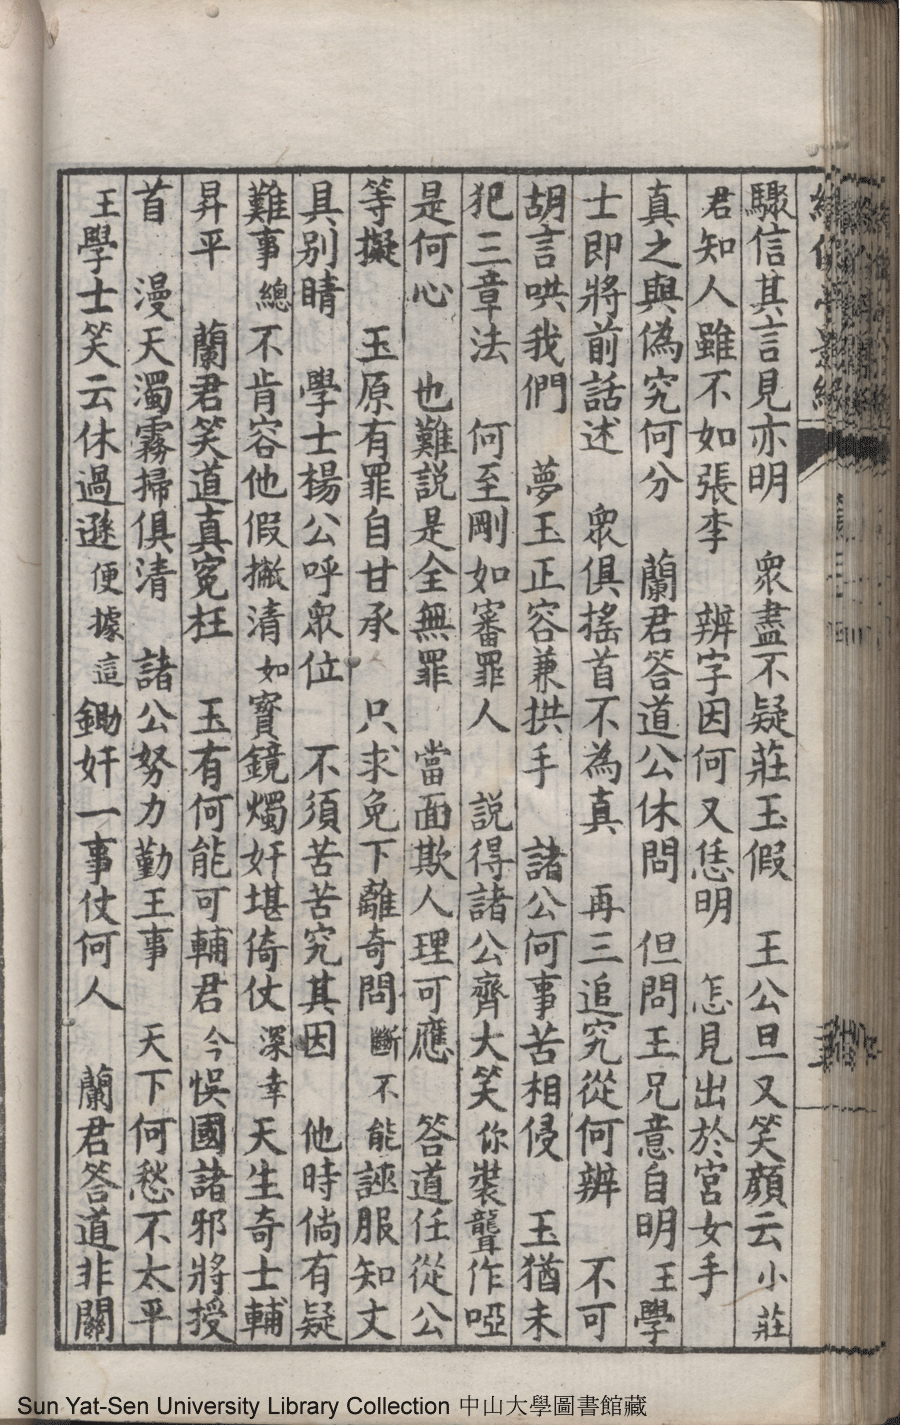 驟信其言見亦明　眾盡不疑莊玉假　王公旦又笑顏云小莊
君知人雖不如張李　辨字因何又恁明　怎見出於宮女手
真之與偽究何分　蘭君答道公休問　但問王兄意自明王學
士即將前話述　眾俱搖首不為真　再三追究從何辨　不可
胡言哄我們　夢玉正容兼拱手　諸公何事苦相侵　玉猶未
犯三章法　何至剛如審罪人　說得諸公齊大笑你裝聾作啞
是何心　也難説是全無罪　當面欺人理可應　答道任從公
等擬　玉原有罪自甘承　只求免下離奇問斷不能誣服知丈
具别睛　學士楊公呼眾位　不須苦苦究其因　他時倘有疑
難事總不肯容他假撇清如寶鏡燭奸堪倚仗深幸天生奇士輔
昇平　蘭君笑道真冤枉　玉有何能可輔君今悞國諸邪將授
首　漫天濁霧掃俱清　諸公努力勤王事　天下何愁不太平
王學士笑云休過遜便據這鋤奸一事仗何人　蘭君答道非關
Sun Yat-Sen University Library Collection 中山大學圖書館藏